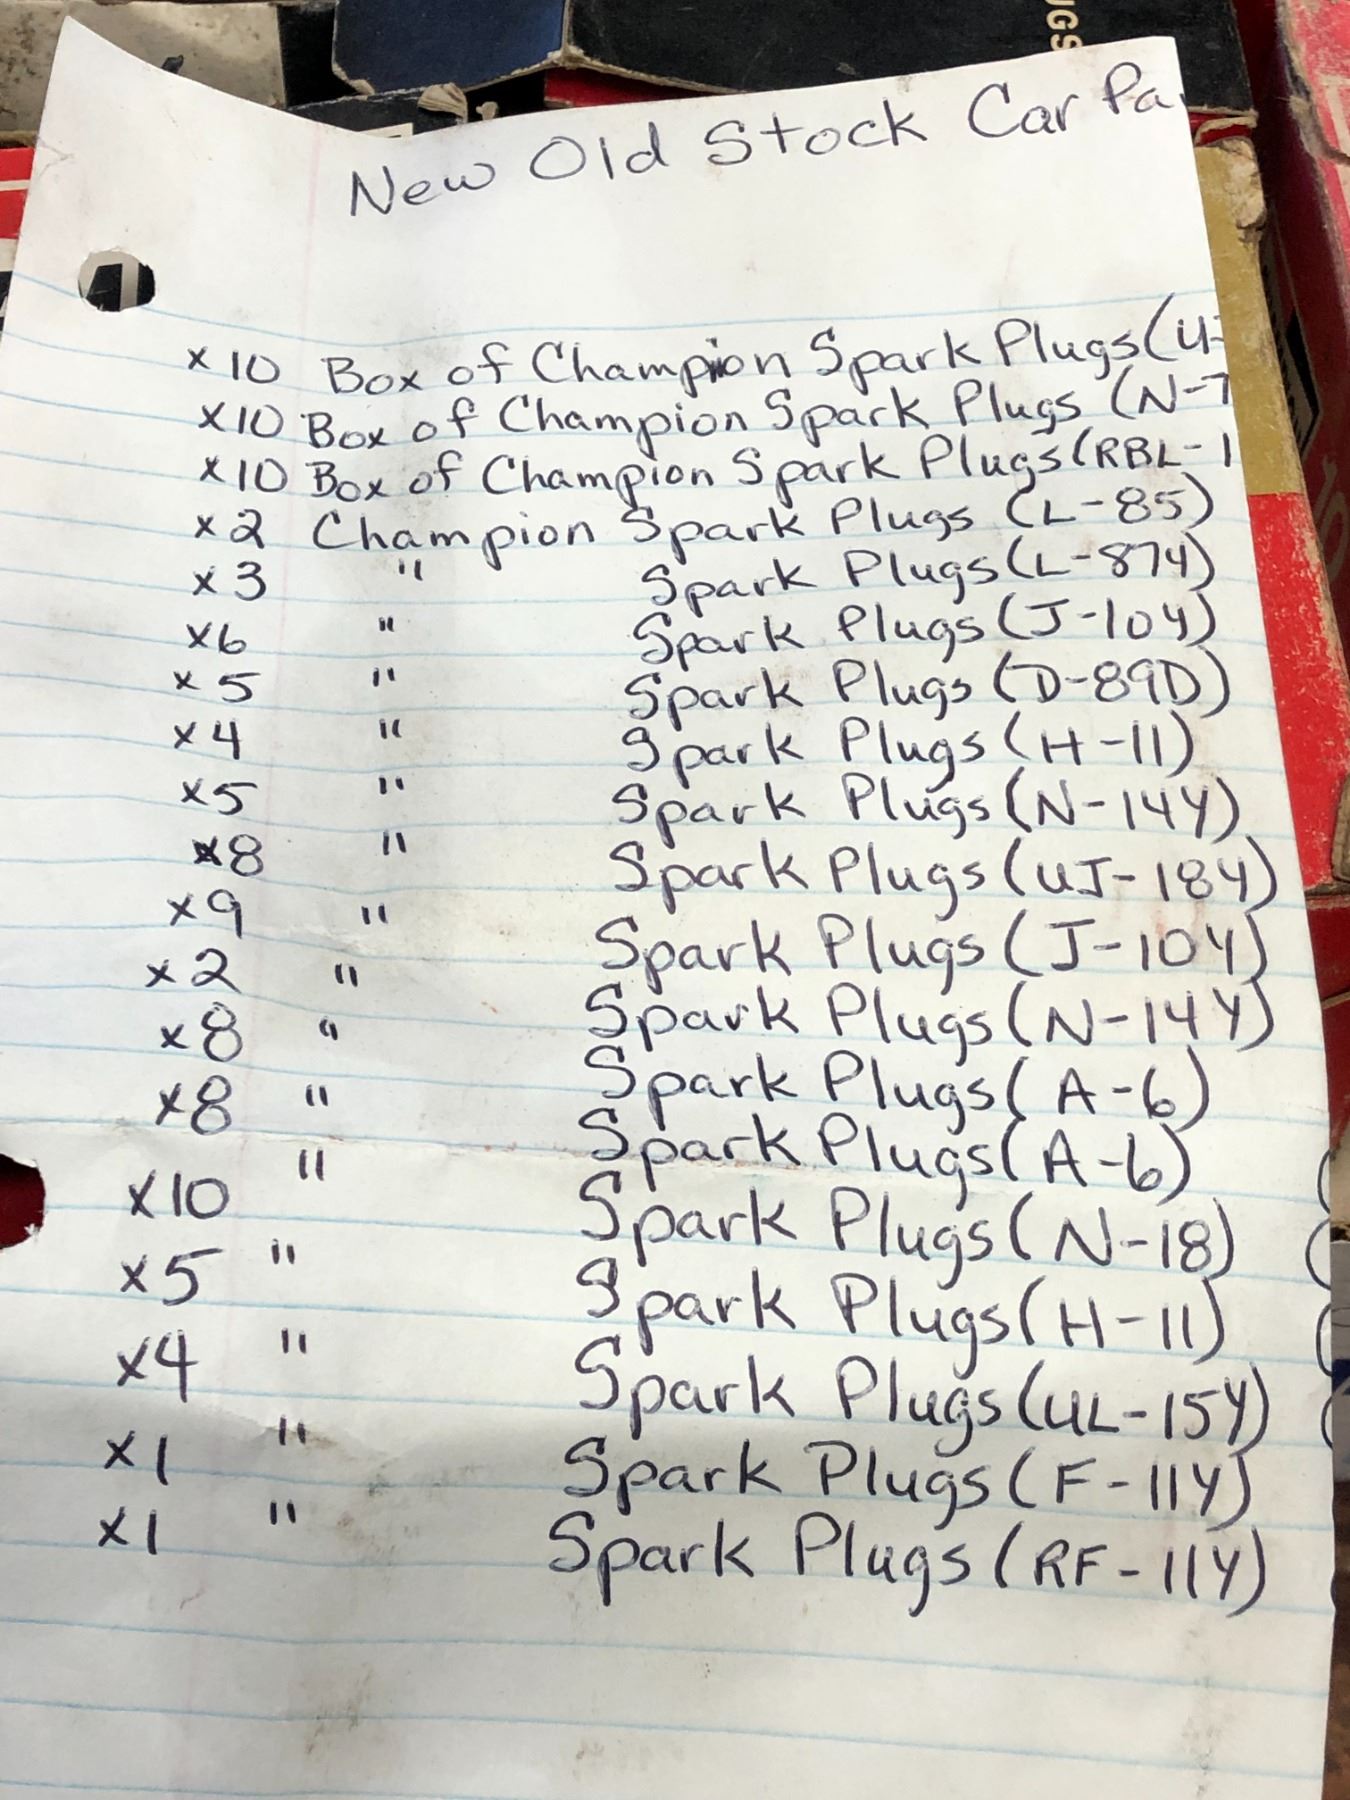 UGS
New Old Stock Car Pa
x10 Box of Champion Spark Plugs (U-
x10 Box of Champion Spark Plugs (N-7
x10 Box of Champion Spark Plugs (RBL-1
x2 Champion Spark Plugs (L-85)
x3 " Spark Plugs (L-87Y)
x6 " Spark Plugs (J-10Y)
x5 " Spark Plugs (D-89D)
x4 " Spark Plugs (H-11)
x5 " Spark Plugs (N-14Y)
x8 " Spark Plugs (UJ-18Y)
x9 " Spark Plugs (J-10Y)
x2 " Spark Plugs (N-14Y)
x8 " Spark Plugs (A-6)
x8 " Spark Plugs (A-6)
x10 " Spark Plugs (N-18)
x5 " Spark Plugs (H-11)
x4 " Spark Plugs (UL-15Y)
x1 " Spark Plugs (F-11Y)
x1 " Spark Plugs (RF-11Y)